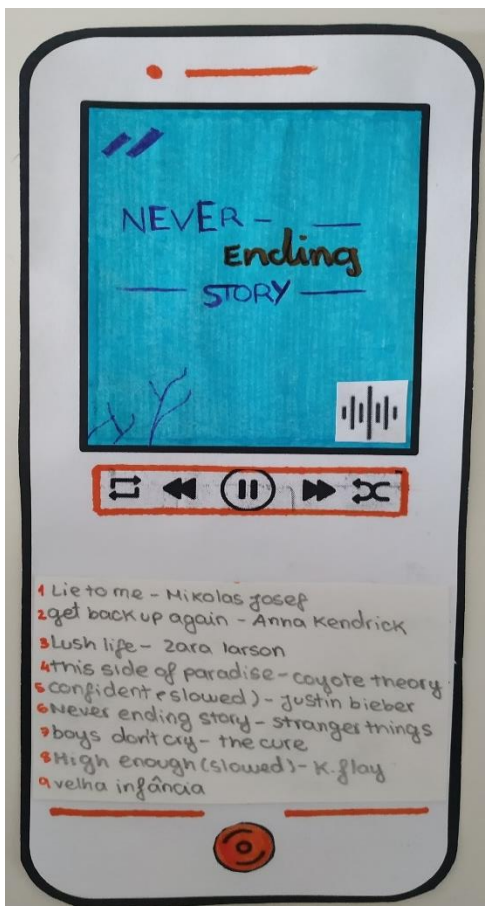 NEVER -
Ending
STORY
1 Lie to me - Mikolas josef
2 get back up again - Anna Kendrick
3 Lush life - zara larson
4 this side of paradise - coyote theory
5 confident (slowed) - justin bieber
6 Never ending story - stranger things
7 boys don't cry - the cure
8 High enough (slowed) - K. flay
9 velha infância